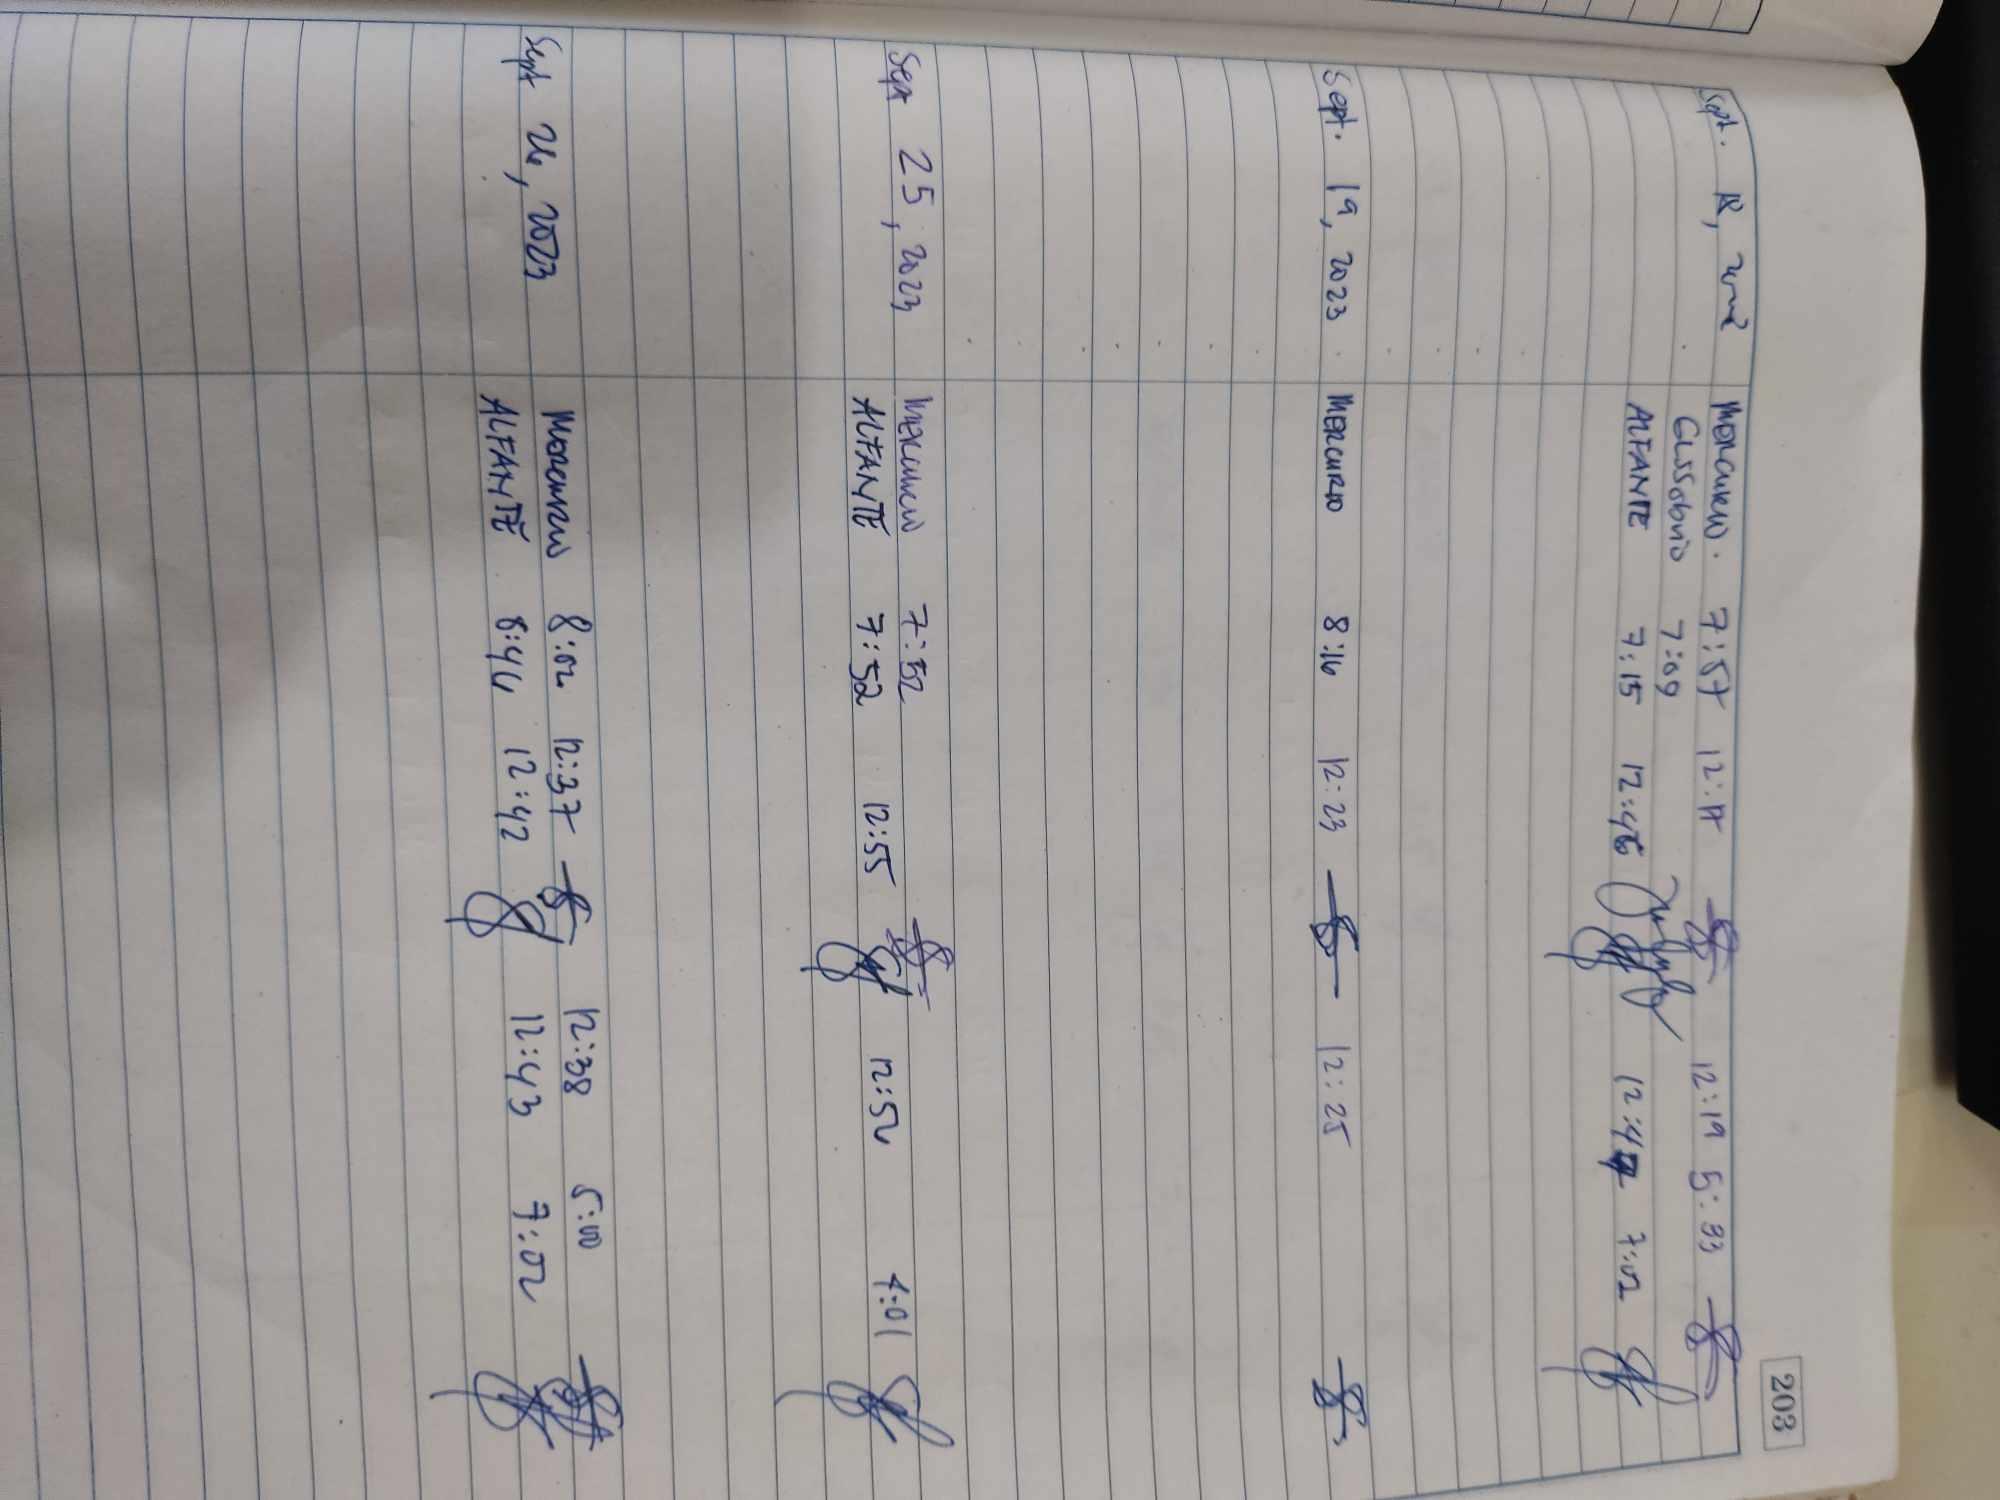 203
Sept. 18, 2023 Mercurio. 7:57 12:17 12:19 5:33
7:09
ALFANTE 7:15 12:46 12:47 7:02
Sept. 19, 2023 MERCURIO 8:16 12:23 12:25
Sept 25, 2023 Mercurio 7:52
ALFANTE 7:52 12:55 12:56 4:01
Sept 26, 2023 Mercurio 8:02 12:37 12:38 5:00
ALFANTE 8:46 12:42 12:43 7:02